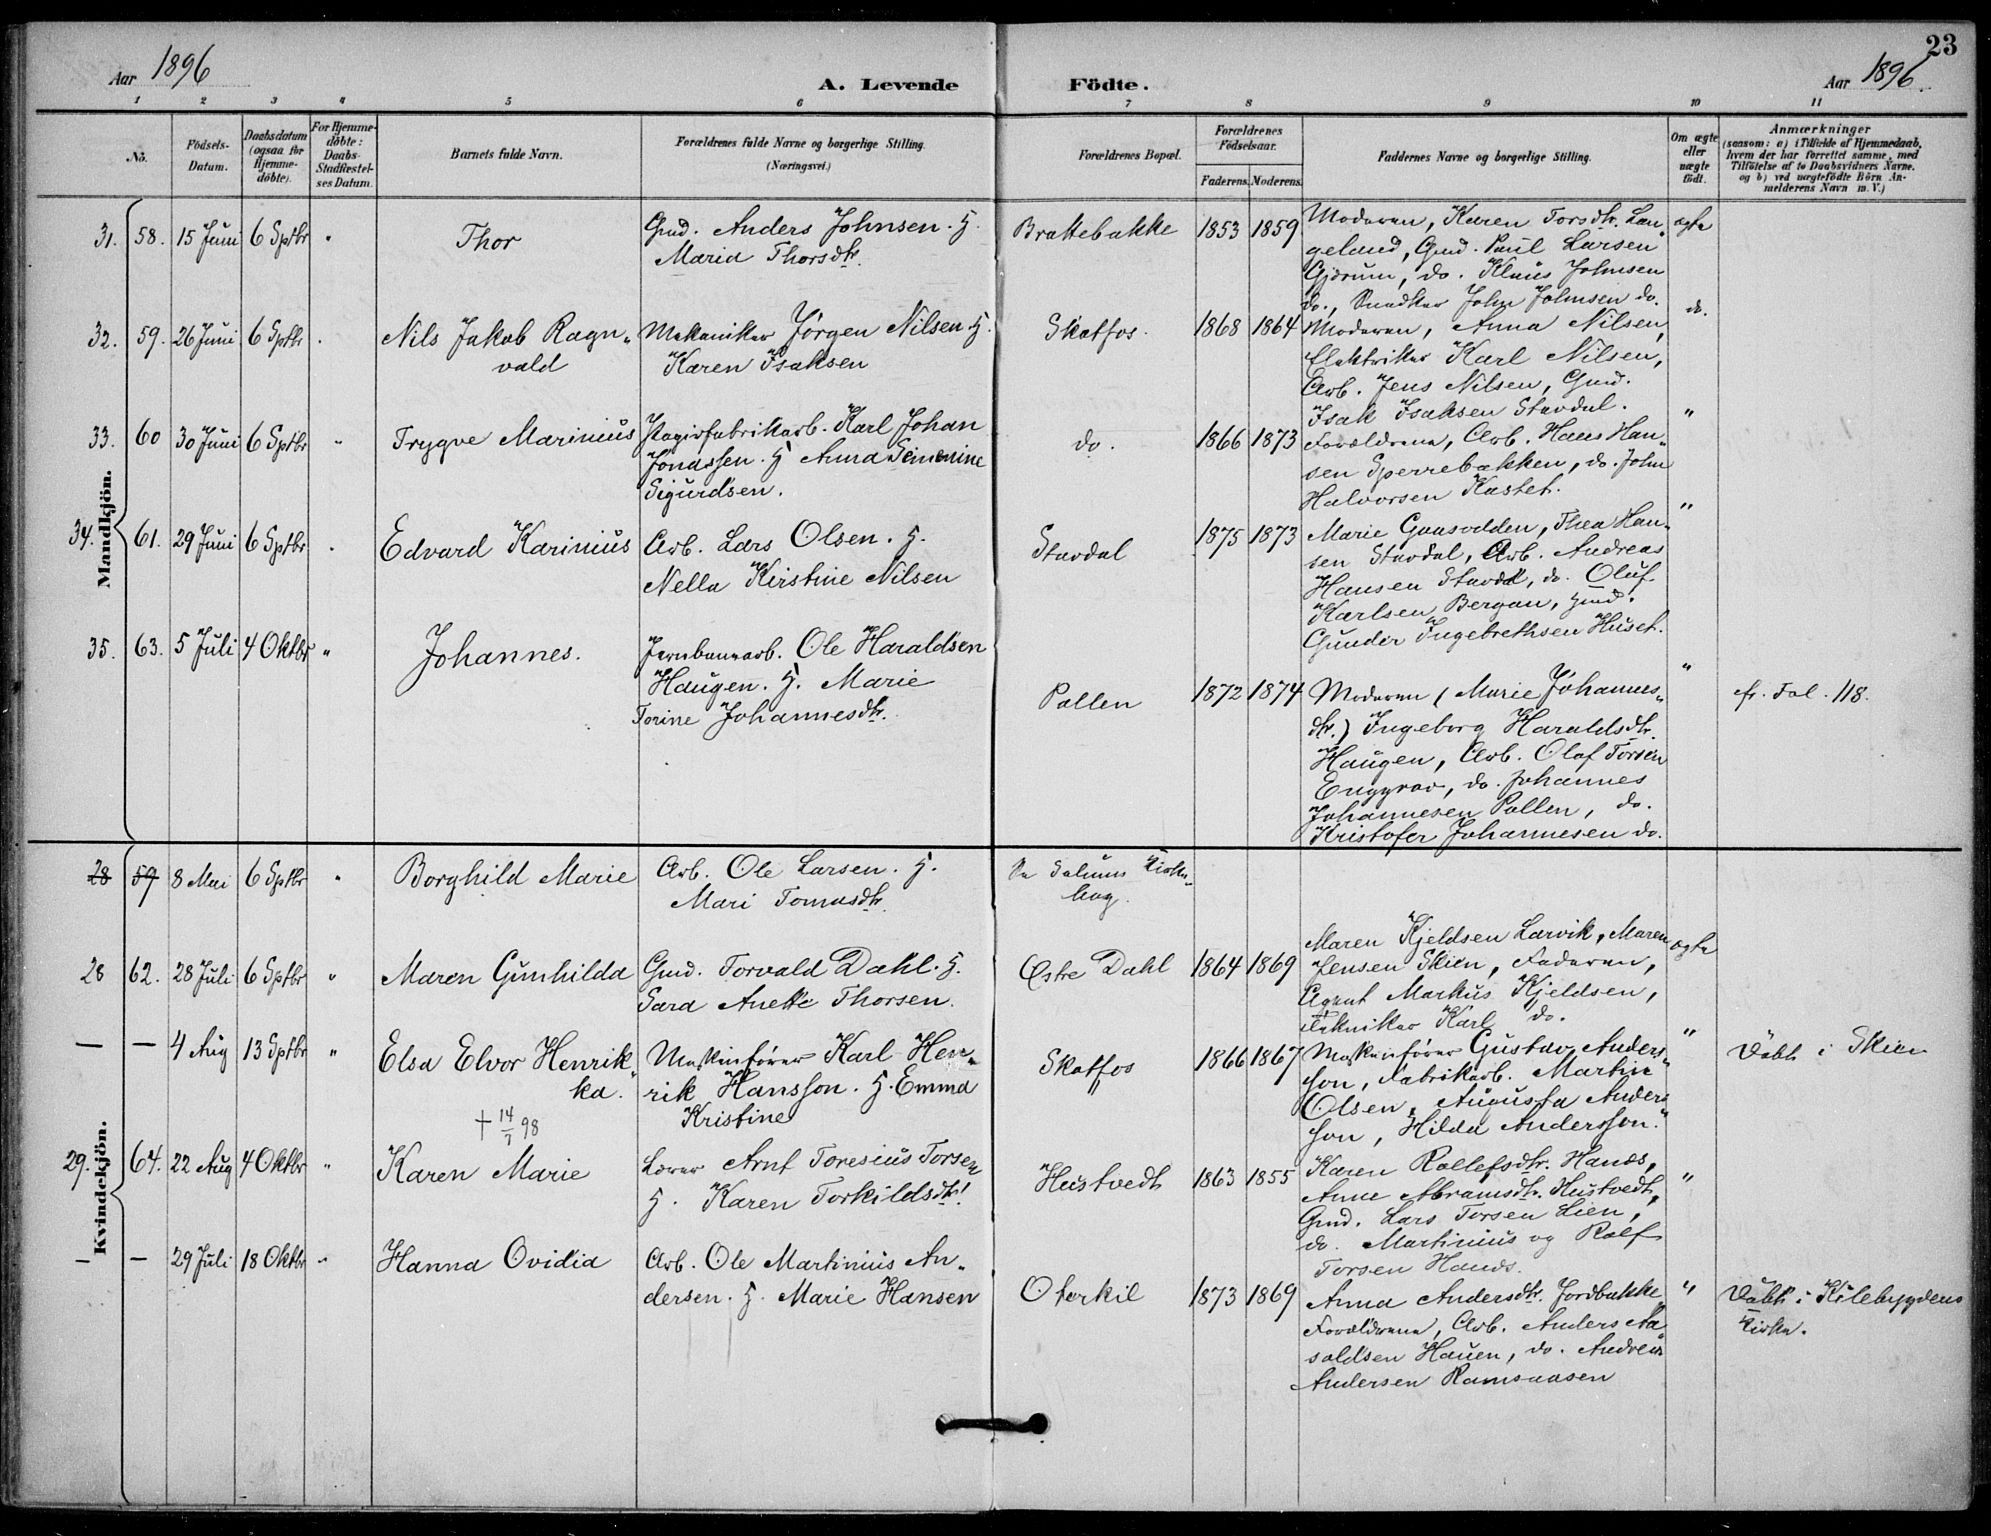 23
Aar 1896
A. Levende Födte.
Aar 1896.
1 2 3 4 5 6 7 8 9 10 11
No.
Födsels-
Datum.
Daabsdatum
(ogsaa for
Hjemme-
döbte).
For Hjemme-
döbte:
Daabs-
Stadfæstel-
ses Datum.
Barnets fulde Navn.
Forældrenes fulde Navne og borgerlige Stilling.
(Næringsvei.)
Forældrenes Bopæl.
Forældrenes
Födselsaar.
Faderens. Moderens.
Faddernes Navne og borgerlige Stilling.
Om ægte
eller
uægte
födt.
Anmærkninger
(saasom: a) i Tilfælde af Hjemmedaab,
hvem der har forrettet samme, med
Tilföielse af to Daabsvidners Navne.
og b) ved uægtefödte Börn An-
melderens Navn m. V.)
Mandkjön.
31. 58. 15 Juni 6 Sptbr "
Thor
Gmd. Anders Johnsen. H.
Maria Thorsdtr.
Brattebakke
1853 1859
Moderen, Karen Torsdtr. Lan-
geland, Gmd. Paul Larsen
Gjerum, do. Klaus Johnsen
do., Snedker John Johnsen do.
ægte
32. 59. 26 Juni 6 Sptbr "
Nils Jakob Ragn-
vald
Mekaniker Jörgen Nilsen. H.
Karen Isaksen
Skotfos.
1868 1864
Moderen, Anna Nilsen,
Elektriker Karl Nilsen,
Arb. Jens Nilsen, Gmd.
Isak Isaksen Stavdal.
do.
33. 60 30 Juni 6 Sptbr "
Trygve Marinius
Papirfabrikarb. Karl Johan
Jonassen. H Anna Simonine
Sigurdsen.
do.
1866 1873
Forældrene, Arb. Hans Han-
sen Sperrebakken, do. John
Halvorsen Kastet.
"
34. 61. 29 Juni 6 Sptbr "
Edvard Karinius
Arb. Lars Olsen. H.
Nella Kirstine Nilsen
Stavdal
1875 1873
Marie Gaasodden, Thea Han-
sen Stavdal, Arb. Andreas
Hansen Stavdal, do. Oluf
Karlsen Bergan, Gmd.
Gunder Ingebrethsen Huset.
"
35. 63. 5 Juli 4 Oktbr "
Johannes.
Jernbanearb. Ole Haraldsen
Haugen. H. Marie
Torine Johannesdtr.
Pollen
1872 1874
Moderen (Marie Johannes-
dtr.) Ingeborg Haraldsdtr.
Haugen, Arb. Olaf Torsen
Enggrav, do. Johannes
Johannesen Pollen, do.
Kristofer Johannesen do.
"
fr. Fol. 118.
Kvindekjön.
28 59 8 Mai 6 Sptbr "
Borghild Marie
Arb. Ole Larsen. H.
Mari Tomasdtr.
Se Solums Kirke-
bog.
28 62. 28 Juli 6 Sptbr "
Maren Gunhilda
Gmd. Torvald Dahl. H.
Sara Anette Thorsen.
Østre Dahl
1864 1869
Maren Kjeldsen Larvik, Maren
Jensen Skien, Faderen,
Agent Markus Kjeldsen,
Tekniker Karl do.
ægte
— — 4 Aug 13 Sptbr "
Elsa Elvor Henrik-
ka.
+ 14/7 98
Maskinfører Karl Hen-
rik Hansson. H. Emma
Kristine
Skotfos
1866 1867
Maskinfører Gustav Anders-
son, Fabrikarb. Martin
Olsen, Augusta Anders-
son, Hilda Andersson.
"
Døbt i Skien
29. 64. 22 Aug 4 Oktbr "
Karen Marie
Lærer Arnt Toresius Torsen
H. Karen Torkildsdtr.
Hustvedt
1863 1855
Karen Rollefsdtr. Hands,
Anne Abramsdtr. Hustvedt,
Gmd. Lars Torsen Lien,
do. Martinius og Rolf
Torsen Hands.
"
— — 29 Juli 18 Oktbr "
Hanna Ovidia
Arb. Ole Martinius An-
dersen. H. Marie Hansen
Oterkil
1873 1869
Anna Andersdtr. Jordbakke,
Forældrene, Arb. Anders Aa-
soldsen Hauen, do. Andreas
Andersen Ramsaasen
"
Døbt i Kilebygdens
Kirke.